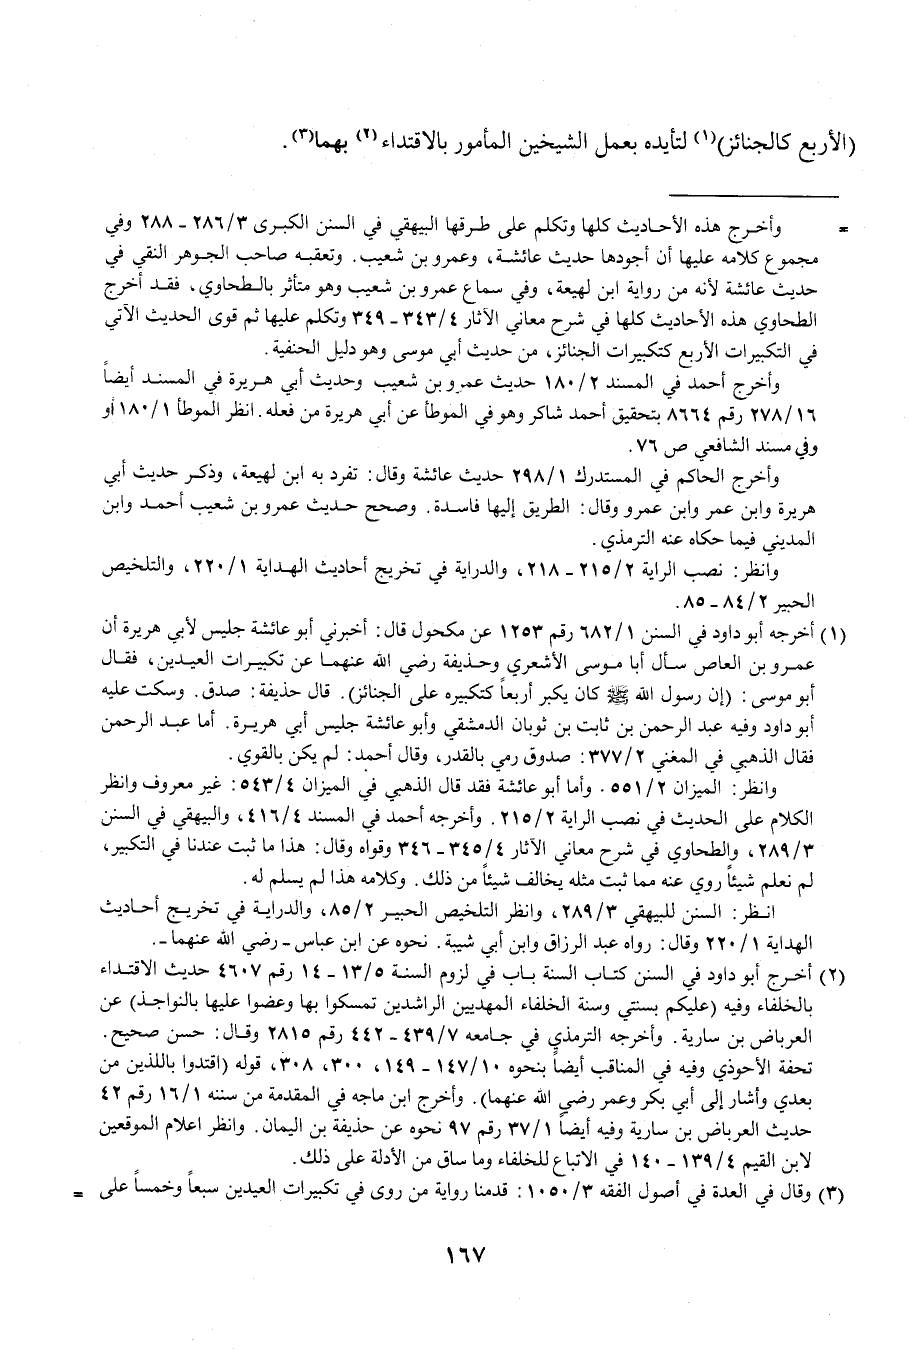 (الأربع كالجنائز)(١) لتأيده بعمل الشيخين المأمور بالاقتداء(٢) بهما(٣).
= وأخرج هذه الأحاديث كلها وتكلم على طرقها البيهقي في السنن الكبرى ٢٨٦/٣ ـ ٢٨٨ وفي
مجموع كلامه عليها أن أجودها حديث عائشة، وعمرو بن شعيب. وتعقبه صاحب الجوهر النقي في
حديث عائشة لأنه من رواية ابن لهيعة، وفي سماع عمرو بن شعيب وهو متأثر بالطحاوي، فقد أخرج
الطحاوي هذه الأحاديث كلها في شرح معاني الآثار ٣٤٣/٤ ـ ٣٤٩ وتكلم عليها ثم قوى الحديث الآتي
في التكبيرات الأربع كتكبيرات الجنائز، من حديث أبي موسى وهو دليل الحنفية.
وأخرج أحمد في المسند ١٨٠/٢ حديث عمرو بن شعيب وحديث أبي هريرة في المسند أيضاً
٢٧٨/١٦ رقم ٨٦٦٤ بتحقيق أحمد شاكر وهو في الموطأ عن أبي هريرة من فعله. انظر الموطأ ١٨٠/١ أو
وفي مسند الشافعي ص ٧٦.
وأخرج الحاكم في المستدرك ٢٩٨/١ حديث عائشة وقال: تفرد به ابن لهيعة، وذكر حديث أبي
هريرة وابن عمر وابن عمرو وقال: الطريق إليها فاسدة. وصحح حديث عمرو بن شعيب أحمد وابن
المديني فيما حكاه عنه الترمذي.
وانظر: نصب الراية ٢١٥/٢ ـ ٢١٨، والدراية في تخريج أحاديث الهداية ٢٢٠/١، والتلخيص
الحبير ٨٤/٢ ـ ٨٥.
(١) أخرجه أبو داود في السنن ٦٨٢/١ رقم ١٢٥٣ عن مكحول قال: أخبرني أبو عائشة جليس لأبي هريرة أن
عمرو بن العاص سأل أبا موسى الأشعري وحذيفة رضي الله عنهما عن تكبيرات العيدين، فقال
أبو موسى: (إن رسول الله ﷺ كان يكبر أربعاً كتكبيره على الجنائز). قال حذيفة: صدق. وسكت عليه
أبو داود وفيه عبد الرحمن بن ثابت بن ثوبان الدمشقي وأبو عائشة جليس أبي هريرة. أما عبد الرحمن
فقال الذهبي في المغني ٣٧٧/٢: صدوق رمي بالقدر، وقال أحمد: لم يكن بالقوي.
وانظر: الميزان ٥٥١/٢. وأما أبو عائشة فقد قال الذهبي في الميزان ٥٤٣/٤: غير معروف وانظر
الكلام على الحديث في نصب الراية ٢١٥/٢. وأخرجه أحمد في المسند ٤١٦/٤، والبيهقي في السنن
٢٨٩/٣، والطحاوي في شرح معاني الآثار ٣٤٥/٤ ـ ٣٤٦ وقواه وقال: هذا ما ثبت عندنا في التكبير،
لم نعلم شيئاً روي عنه مما ثبت مثله يخالف شيئاً من ذلك. وكلامه هذا لم يسلم له.
انظر: السنن للبيهقي ٢٨٩/٣، وانظر التلخيص الحبير ٨٥/٢، والدراية في تخريج أحاديث
الهداية ٢٢٠/١ وقال: رواه عبد الرزاق وابن أبي شيبة. نحوه عن ابن عباس ـ رضي الله عنهما ـ.
(٢) أخرج أبو داود في السنن كتاب السنة باب في لزوم السنة ١٣/٥ ـ ١٤ رقم ٤٦٠٧ حديث الاقتداء
بالخلفاء وفيه (عليكم بسنتي وسنة الخلفاء المهديين الراشدين تمسكوا بها وعضوا عليها بالنواجذ) عن
العرباض بن سارية. وأخرجه الترمذي في جامعه ٤٣٩/٧ ـ ٤٤٢ رقم ٢٨١٥ وقال: حسن صحيح.
تحفة الأحوذي وفيه في المناقب أيضاً بنحوه ١٤٧/١٠ ـ ١٤٩، ٣٠٠، ٣٠٨، قوله (اقتدوا باللذين من
بعدي وأشار إلى أبي بكر وعمر رضي الله عنهما). وأخرج ابن ماجه في المقدمة من سننه ١٦/١ رقم ٤٢
حديث العرباض بن سارية وفيه أيضاً ٣٧/١ رقم ٩٧ نحوه عن حذيفة بن اليمان. وانظر اعلام الموقعين
لابن القيم ١٣٩/٤ ـ ١٤٠ في الاتباع للخلفاء وما ساق من الأدلة على ذلك.
(٣) وقال في العدة في أصول الفقه ١٠٥٠/٣: قدمنا رواية من روى في تكبيرات العيدين سبعاً وخمساً على =
١٦٧